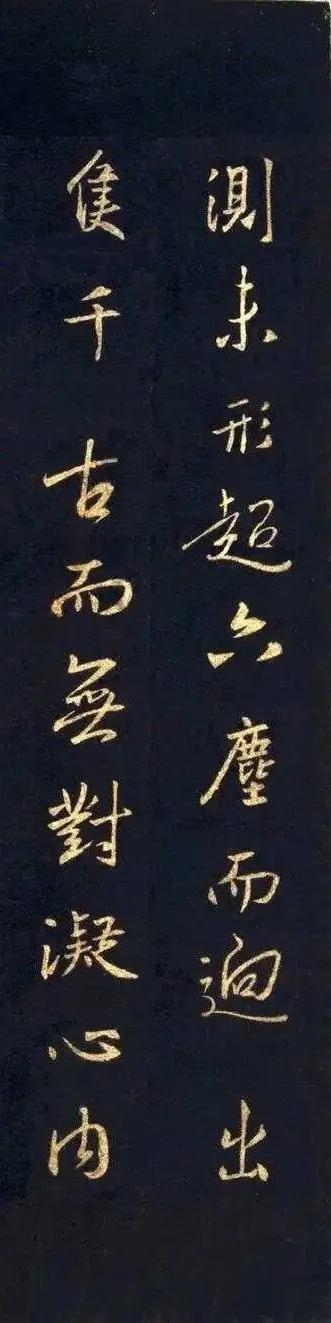 測未形超六塵而逈出
隻千古而無對凝心内